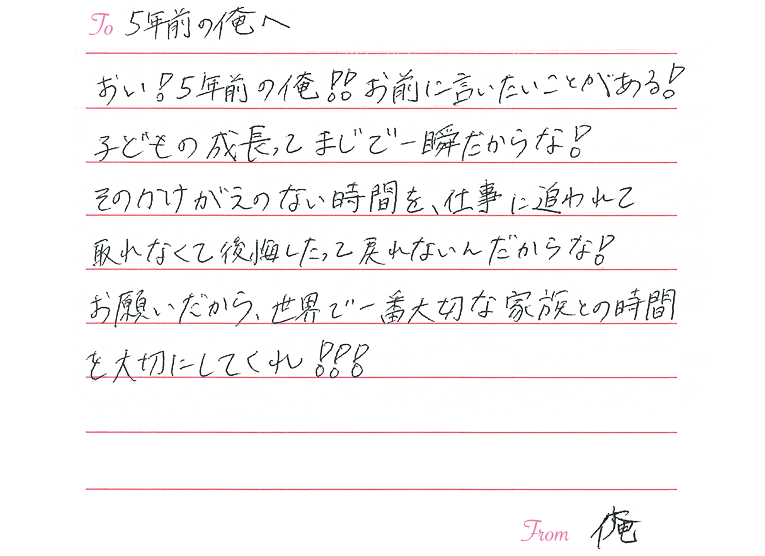 To 5年前の俺へ
おい!5年前の俺!!お前に言いたいことがある!
子どもの成長ってまじで一瞬だからな!
そのかけがえのない時間を、仕事に追われて
取れなくて後悔したって戻れないんだからな!
お願いだから、世界で一番大切な家族との時間
を大切にしてくれ!!!
From 俺